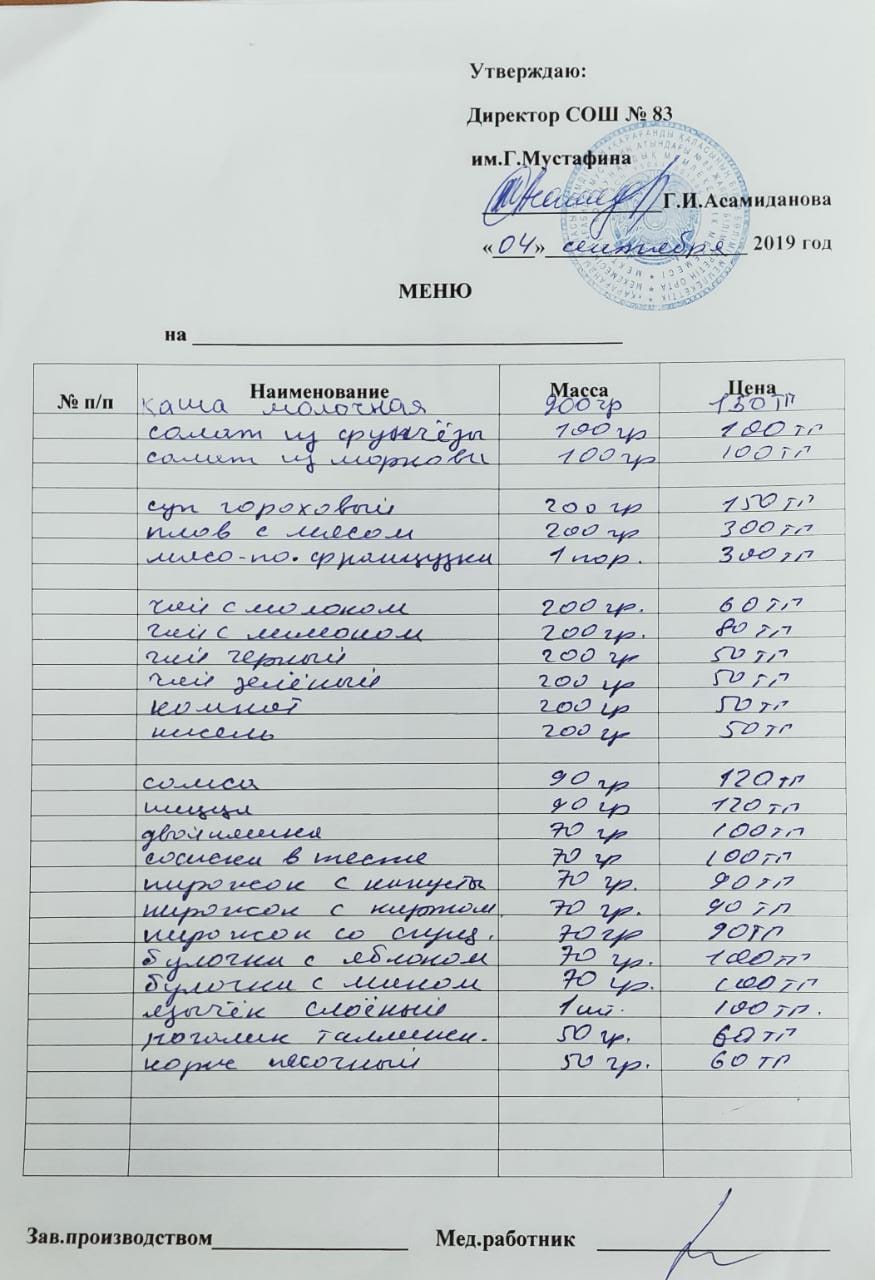 Утверждаю:
Директор СОШ № 83
им.Г.Мустафина
Г.И.Асамиданова
«04» сентября 2019 год
МЕНЮ
на
№ п/п Наименование Масса Цена
каша молочная 200 гр 150 тг
салат из фунчёзы 100 гр 100 тг
салат из моркови 100 гр 100 тг
суп гороховый 200 гр 150 тг
плов с мясом 200 гр 300 тг
мясо-по. французки 1 пор. 300 тг
чай с молоком 200 гр. 60 тг
чай с лимоном 200 гр. 80 тг
чай черный 200 гр 50 тг
чай зелёный 200 гр 50 тг
компот 200 гр 50 тг
кисель 200 гр 50 тг
самса 90 гр 120 тг
пицца 90 гр 120 тг
двойняшка 70 гр 100 тг
сосиски в тесте 70 гр 100 тг
пирожок с капусты 70 гр. 90 тг
пирожок с картом. 70 гр. 90 тг
пирожок со 70 гр 90 тг
булочки с яблоком 70 гр. 100 тг
булочки с маком 70 гр. 100 тг
язычёк слоёный 1 шт. 100 тг.
рогалик таллинск. 50 гр. 60 тг
корж песочный 50 гр. 60 тг
Зав.производством Мед.работник